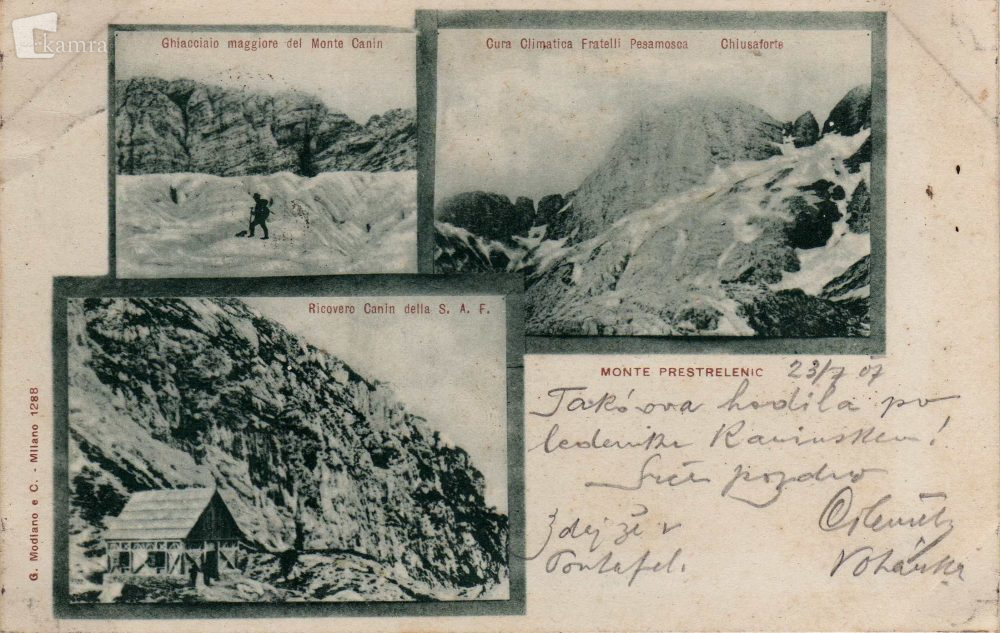 kamra
Ghiacciaio maggiore del Monte Canin
Cura Climatica Fratelli Pesamosca Chiusaforte
Ricovero Canin della S. A. F.
G. Modiano e C. - Milano 1288
MONTE PRESTRELENIC
23/7 07
Takó ova hodila po
ledeniku Kaninskem!
Srčn pozdrav
Zdaj že v
Pontafel.